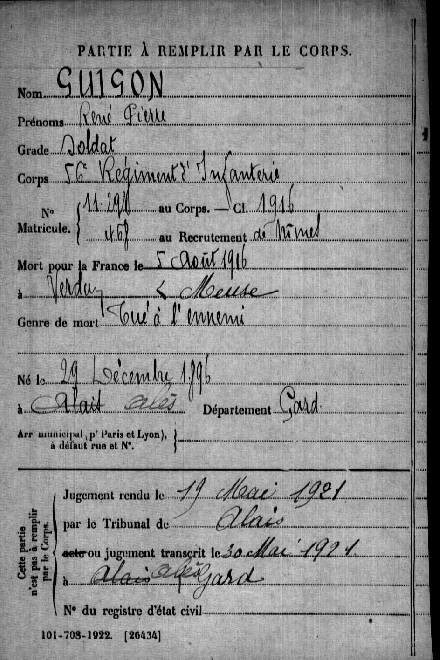 PARTIE À REMPLIR PAR LE CORPS.
Nom GUIGON
Prénoms René Pierre
Grade Soldat
Corps 56e Régiment d'Infanterie
N° Matricule. { 11.290 au Corps. — Cl. 1916
468 au Recrutement de Nîmes
Mort pour la France le 5 Août 1916
à Verdun Meuse
Genre de mort Tué à l'ennemi
Né le 29 Décembre 1896
à Alais Alès Département Gard
Arr municipal (pr Paris et Lyon), à défaut rue et N°. }
Cette partie n'est pas à remplir par le Corps.
Jugement rendu le 19 Mai 1921
par le Tribunal de Alais
acte ou jugement transcrit le 30 Mai 1921
à Alais Alès Gard
N° du registre d'état civil
101-708-1922. [26434]